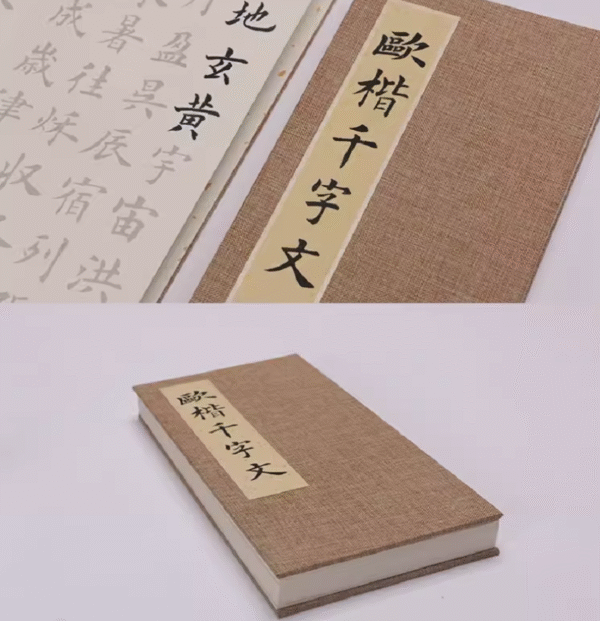 地玄黄宇宙洪
月盈昃辰宿列
暑往秌收
成歲律
歐楷千字文
歐楷千字文